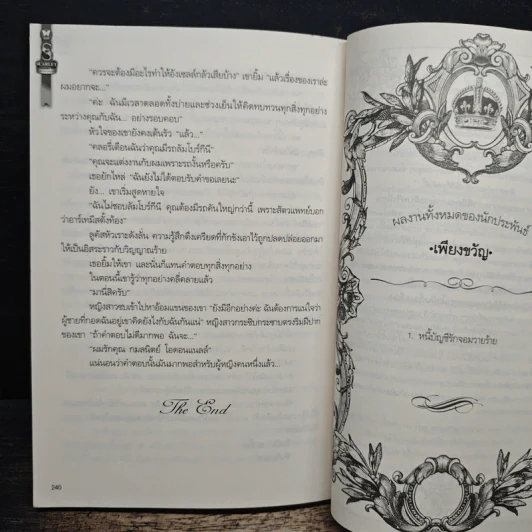 "ควรจะต้องมีอะไรทำให้อังเซลล์กลัวเสียบ้าง" เขายิ้ม "แล้วเรื่องของเราล่ะ
ผมอยากจะ..."
"ค่ะ ฉันมีเวลาตลอดทั้งบ่ายและช่วงเย็นให้คิดทบทวนทุกสิ่งทุกอย่าง
ระหว่างคุณกับฉัน... อย่างรอบคอบ"
หัวใจของเขายังคงเต้นรัว "แล้ว..."
"คลอรี่เตือนฉันว่าคุณมีรถลัมโบร์กีนี"
"คุณจะแต่งงานกับผมเพราะรถงั้นหรือครับ"
เธอยักไหล่ "ฉันยังไม่ได้ตอบรับคำขอเลยนะ"
ยัง... เขาเริ่มสูดหายใจ
"ฉันไม่ชอบลัมโบร์กีนี คุณต้องมีรถคันใหญ่กว่านี้ เพราะสัตวแพทย์บอก
ว่าอาร์เทมีสตั้งท้อง"
ลูคัสหัวเราะดังลั่น ความรู้สึกตึงเครียดที่กักขังเอาไว้ถูกปลดปล่อยออกมา
ให้เป็นอิสระราวกับวิญญาณร้าย
เธอยิ้มให้เขา และนั่นก็แทนคำตอบทุกสิ่งทุกอย่าง
ในตอนนี้เขารู้ว่าทุกอย่างคลี่คลายแล้ว
"มานี่สิครับ"
หญิงสาวซบเข้าไปหาอ้อมแขนของเขา "ยังมีอีกอย่างค่ะ ฉันต้องการแน่ใจว่า
ผู้ชายที่กอดฉันอยู่เขาคิดยังไงกับฉันกันแน่" หญิงสาวกระซิบกระซาบตรงริมฝีปาก
ของเขา "ถ้าคำตอบไม่ดีมากพอ ฉันจะ..."
"ผมรักคุณ กมลนิตย์ โอดอนแนลล์"
แน่นอนว่าคำตอบนั้นมันมากพอสำหรับผู้หญิงคนหนึ่งแล้ว...
The End
240
ผลงานทั้งหมดของนักประพันธ์
•เพียงขวัญ•
1. หนี้บัญชีรักจอมวายร้าย